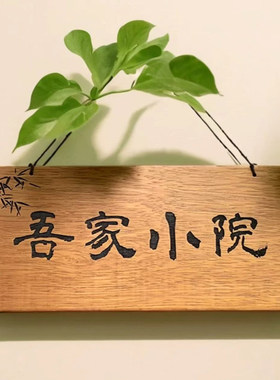 吾家小院